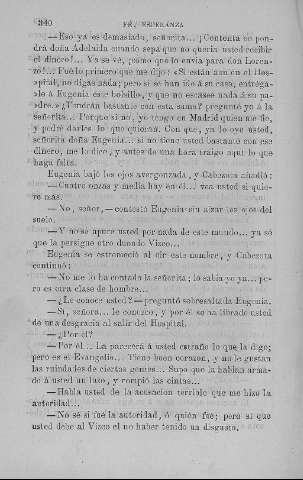 340 FÉ, ESPERANZA
—Eso ya es demasiado, señorita... ¡Contenta se pon-
drá doña Adelaida cuando sepa que no queria usted recibir
el dinero!... Ya se ve, ¡como que lo envia para don Loren-
zo!... Fué lo primero que me dijo: «Si están aun en el Hos-
pital, no digas nada; pero si se han ido á su casa, entréga-
le á Eugenia ese bolsillo, y que no escasee nada á su pa-
dre.» ¿Tendrán bastante con esta suma? pregunté yo á la
señorita... Porque si no, yo tengo en Madrid quien me fie,
y podré darles lo que quieran. Con que, ya lo oye usted,
señorita doña Eugenia... si no tiene usted bastante con ese
dinero, me lo dice, y antes de una hora traigo aquí lo que
haga falta.
Eugenia bajó los ojos avergonzada, y Cabezota añadió:
—Cuatro onzas y media hay en él... vea usted si quie-
re más.
—No, señor,—contestó Eugenia sin alzar los ojos del
suelo.
—Y no se apure usted por nada de este mundo... ya sé
que la persigue otro duende Vizco...
Eugenia se estremeció al oir este nombre, y Cabezota
continuó:
—No me lo ha contado la señorita; lo sabia yo ya... pe-
ro es otra clase de hombre...
—¿Le conoce usted?—preguntó sobresaltada Eugenia.
—Sí, señora... le conozco, y por él se ha librado usted
de una desgracia al salir del Hospital.
—¿Por él?
—Por él... La parecerá á usted extraño lo que la digo;
pero es el Evangelio... Tiene buen corazon, y no le gustan
las ruindades de ciertas gentes... Supo que la habian arma-
do á usted un lazo, y rompió las cintas...
—Habla usted de la acusacion terrible que me hizo la
autoridad...
—No sé si fué la autoridad, ó quién fué; pero sí que
usted debe al Vizco el no haber tenido un disgusto.